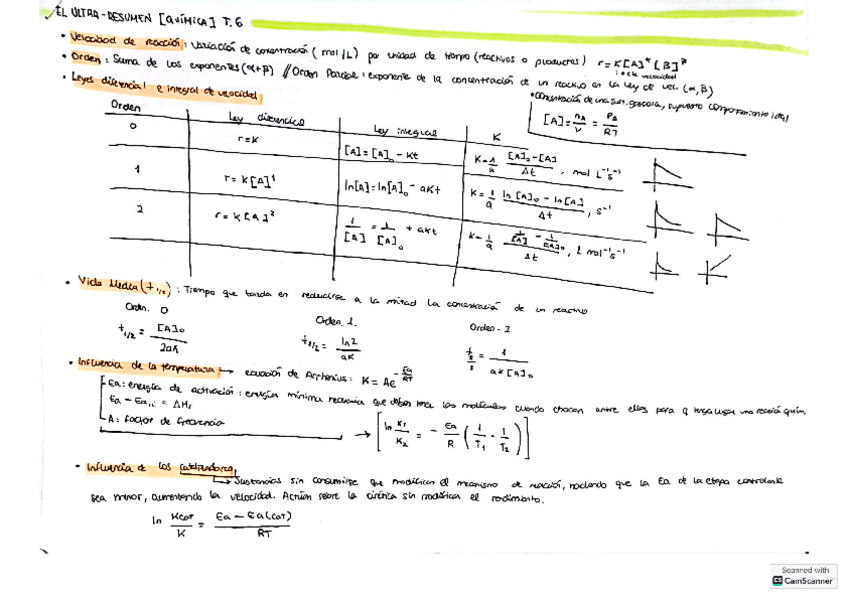 EL ULTRA-RESUMEN [QUÍMICA] T.6
• Velocidad de reacción: Variación de concentración (mol/L) por unidad de tiempo (reactivos o productos) r=K[A]^α[B]^β
• Orden: Suma de los exponentes (α+β) // Orden Parcial: exponente de la concentración de un reactivo en la ley de vel. (α,β)
• Leyes diferencial e integral de velocidad
[A]=nA/V=PA/RT
Orden Ley diferencial Ley integral K
0 r=K [A]=[A]₀-Kt K=1/a [A]₀-[A]/Δt, mol L⁻¹s⁻¹
1 r=K[A]¹ ln[A]=ln[A]₀-aKt K=1/a ln[A]₀-ln[A]/Δt, s⁻¹
2 r=K[A]² 1/[A]=1/[A]₀+aKt K=1/a 1/[A]-1/[A]₀/Δt, L mol⁻¹s⁻¹
• Vida Media (t1/2): Tiempo que tarda en reducirse a la mitad la concentración de un reactivo
Orden. 0 Orden. 1. Orden-2
t1/2=[A]₀/2aK t1/2=ln2/aK t1/2=1/aK[A]₀
• Influencia de la temperatura → ecuación de Arrhenius: K=Ae^-Ea/RT
Ea: energía de activación: energía mínima que deben tener las moléculas cuando chocan entre ellas para q tenga lugar una reacción quím
Ea-Ea,i=ΔHr
A: Factor de frecuencia → [ln K1/K2=-Ea/R(1/T1-1/T2)]
• Influencia de los Catalizadores
→ Sustancias sin consumirse que modifican el mecanismo de reacción, haciendo que la Ea de la etapa controlante
sea menor, aumentando la velocidad. Actúan sobre la cinética sin modificar el rendimiento.
ln Kcat/K=Ea-Ea(cat)/RT
Scanned with
CS CamScanner